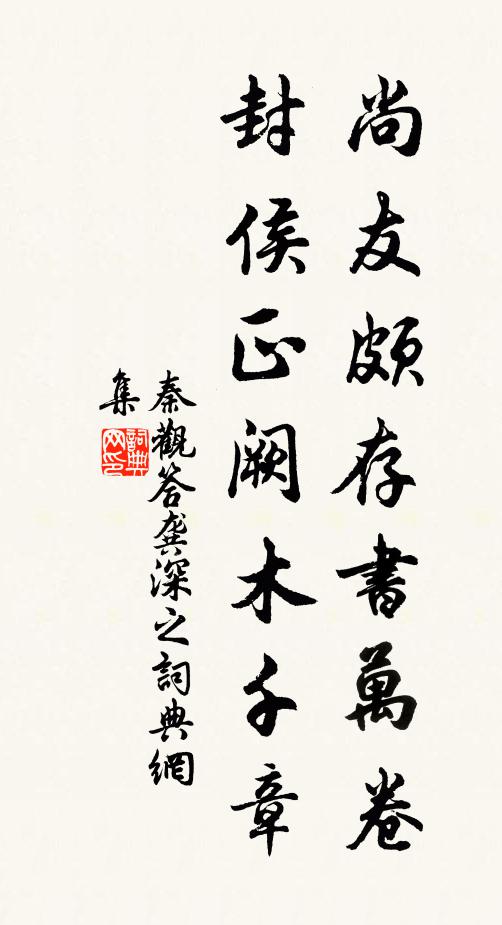 尚友頗存書萬卷
封侯正闕木千章
秦觀答龔深之詞典網
集
詞典
网印